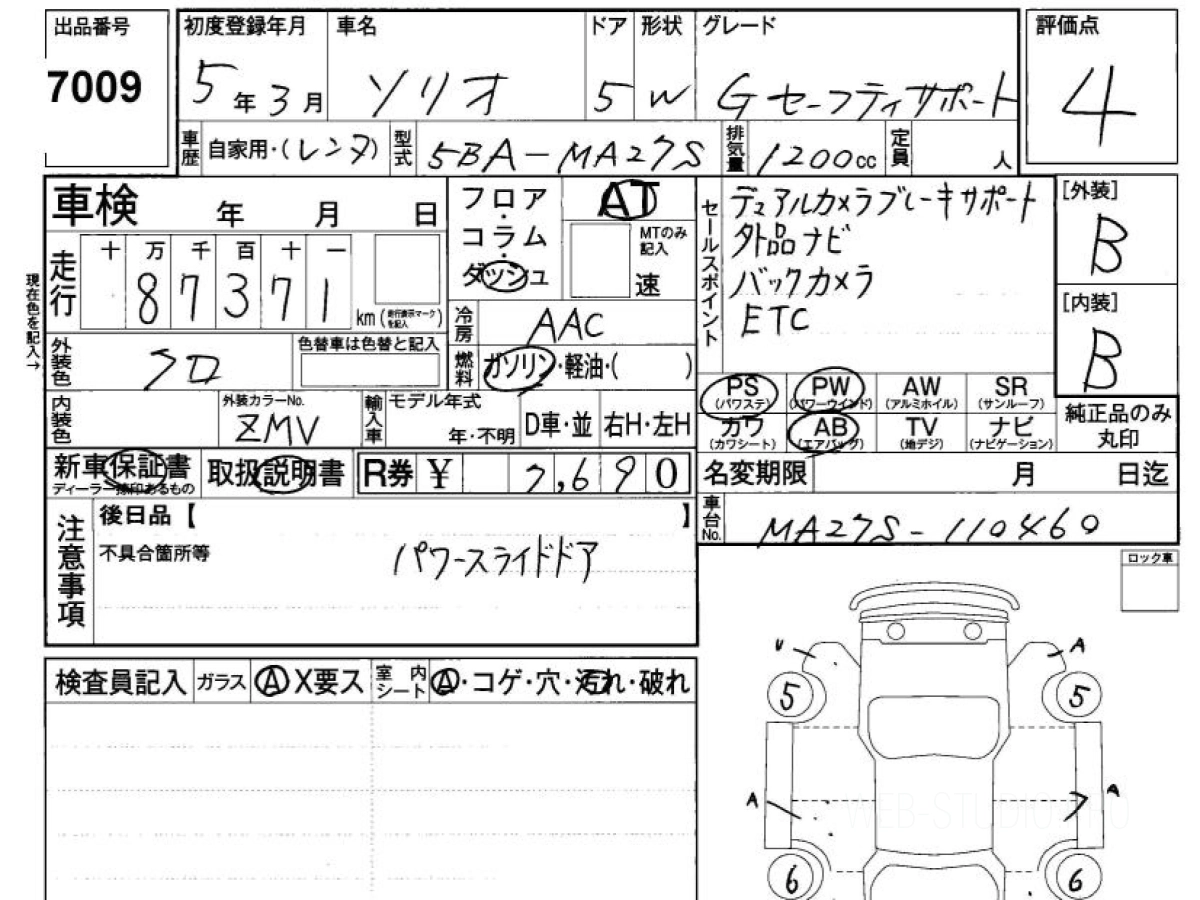 出品番号 初度登録年月 車名 ドア 形状 グレード 評価点
7009 5年3月 ソリオ 5 W Gセーフティサポート 4
車歴 自家用・(レンタ) 型式 5BA-MA27S 排気量 1200cc 定員 人
車検 年 月 日
フロア・コラム・ダッシュ AT
MTのみ記入
速
セールスポイント
デュアルカメラブレーキサポート
外品ナビ
バックカメラ
ETC
[外装]
B
[内装]
B
現在色を記入→
走行 十万千百十一
87371 km(走行表示マークを記入)
冷房 AAC
外装色 クロ 色替車は色替と記入
燃料 ガソリン・軽油・( )
PS (パワステ) PW (パワーウインド) AW (アルミホイル) SR (サンルーフ)
カワ (カワシート) AB (エアバッグ) TV (地デジ) ナビ (ナビゲーション)
純正品のみ丸印
内装色 外装カラーNo. ZMV 輸入車 モデル年式 年・不明 D車・並 右H・左H
新車保証書 ディーラー捺印あるもの 取扱説明書 R券 ¥ 7,690
名変期限 月 日迄
車台No. MA27S-110460
注意事項
後日品【 】
不具合箇所等 パワースライドドア
ロック車
検査員記入 ガラス A X要ス 室内シート A・コゲ・穴・汚れ・破れ
U A
5 5
A A
6 6
WEB-STUDIO.PRO